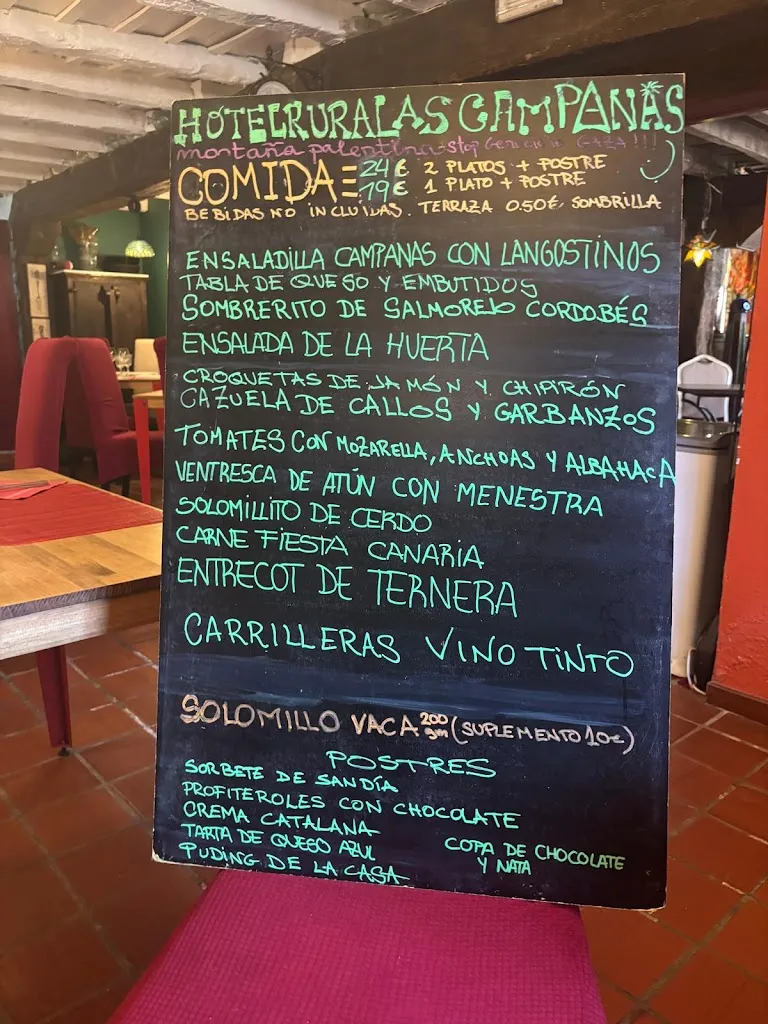 HOTELRURALAS CAMPANAS
montaña palentina-stop Genocidio GAZA!!!
COMIDA = 24€ 2 PLATOS + POSTRE
19€ 1 PLATO + POSTRE
BEBIDAS NO INCLUIDAS. TERRAZA 0.50€ SOMBRILLA
ENSALADILLA CAMPANAS CON LANGOSTINOS
TABLA DE QUESO Y EMBUTIDOS
SOMBRERITO DE SALMOREJO CORDOBÉS
ENSALADA DE LA HUERTA
CROQUETAS DE JAMÓN Y CHIPIRÓN
CAZUELA DE CALLOS Y GARBANZOS
TOMATES CON MOZARELLA, ANCHOAS Y ALBAHACA
VENTRESCA DE ATÚN CON MENESTRA
SOLOMILLITO DE CERDO
CARNE FIESTA CANARIA
ENTRECOT DE TERNERA
CARRILLERAS VINO TINTO
SOLOMILLO VACA 200 gm (SUPLEMENTO 10€)
POSTRES
SORBETE DE SANDÍA
PROFITEROLES CON CHOCOLATE
CREMA CATALANA
TARTA DE QUESO AZUL
PUDING DE LA CASA
COPA DE CHOCOLATE
Y NATA